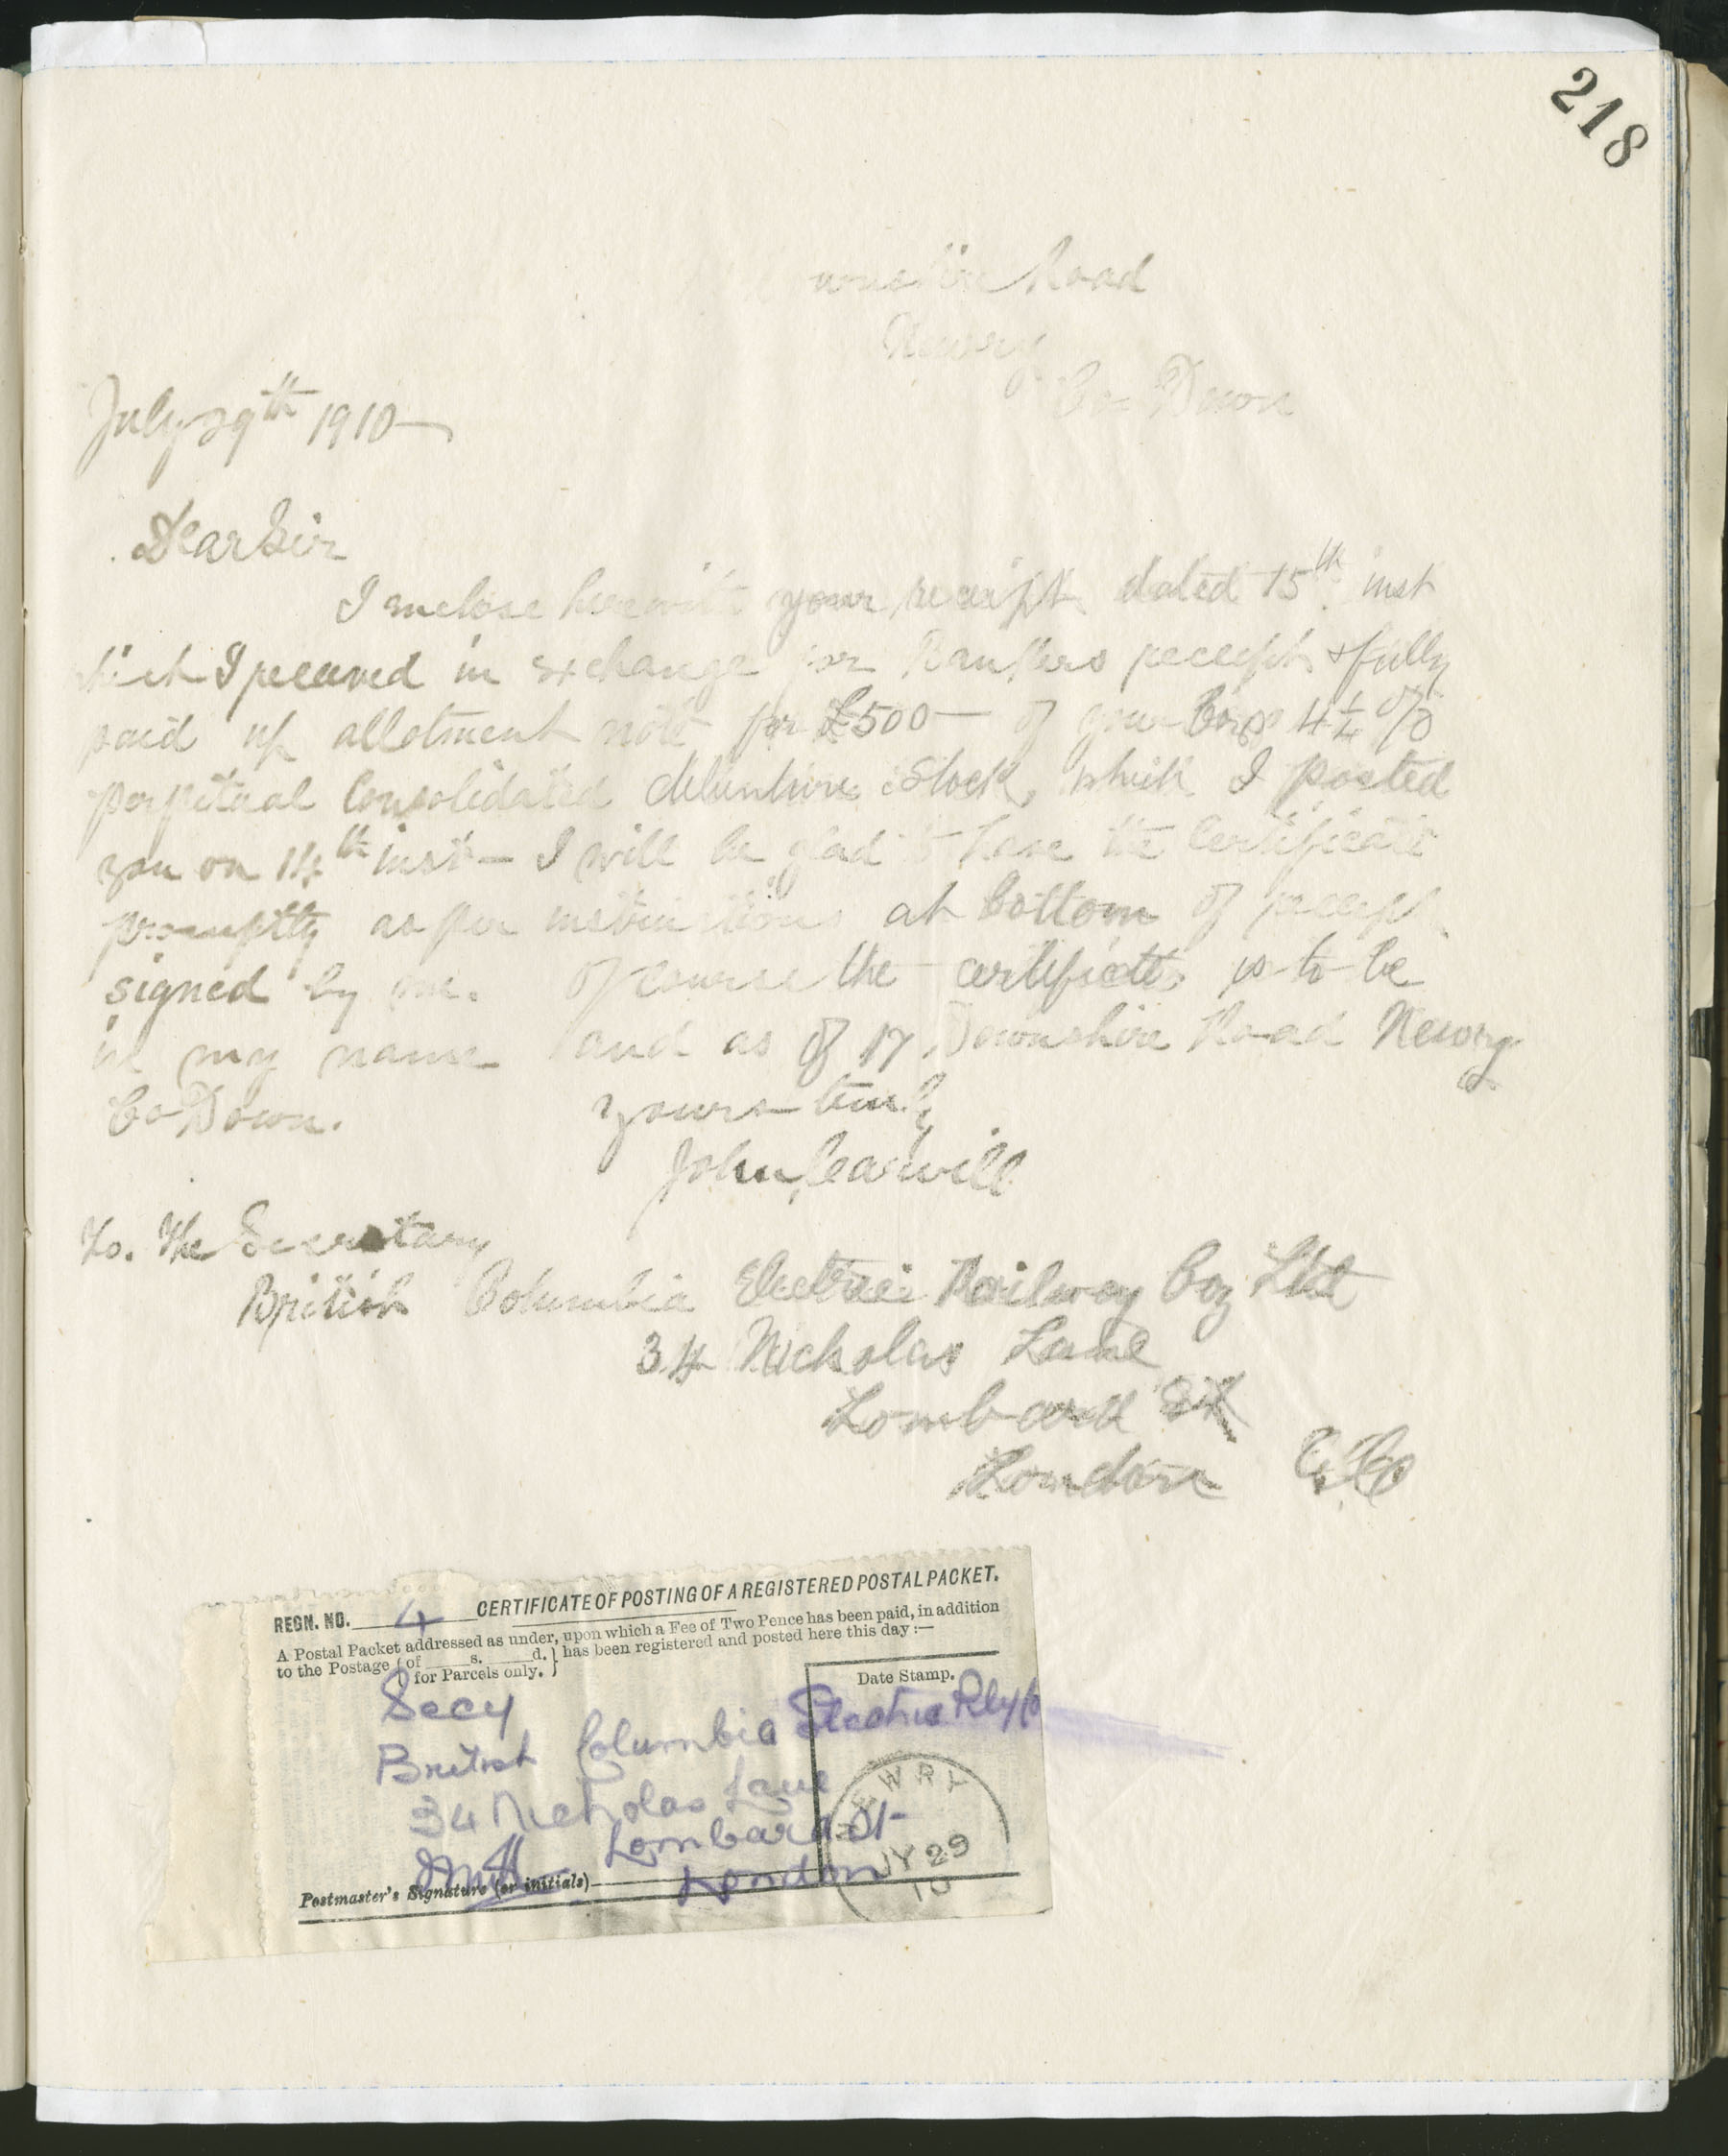 218
Road
Newry
Co Down
July 29th 1910
Dear Sir
I enclose herewith your receipt dated 15th inst
which I received in exchange for Bankers receipt & fully
paid up allotment note for £500 - of your Coys 4¼ %
perpetual Consolidated debenture Stock, which I posted
you on 14th inst - I will be glad to have the Certificate
promptly as per instructions at bottom of receipt
signed by me. Of course the certificate is to be
in my name and as of 17 Downshire Road Newry
Co Down. Yours truly
John
To. The Secretary
British Columbia Electric Railway Coy Ltd
34 Nicholas Lane
Lombard St
London E.C.
CERTIFICATE OF POSTING OF A REGISTERED POSTAL PACKET.
REGN. NO. 4
A Postal Packet addressed as under, upon which a Fee of Two Pence has been paid, in addition
to the Postage (of s. d. for Parcels only.) has been registered and posted here this day :—
Date Stamp.
Secy
British Columbia Electric Rly Co
34 Nicholas Lane
Lombard St
London
Postmaster's Signature (or initials)
NEWRY
JY 29
10